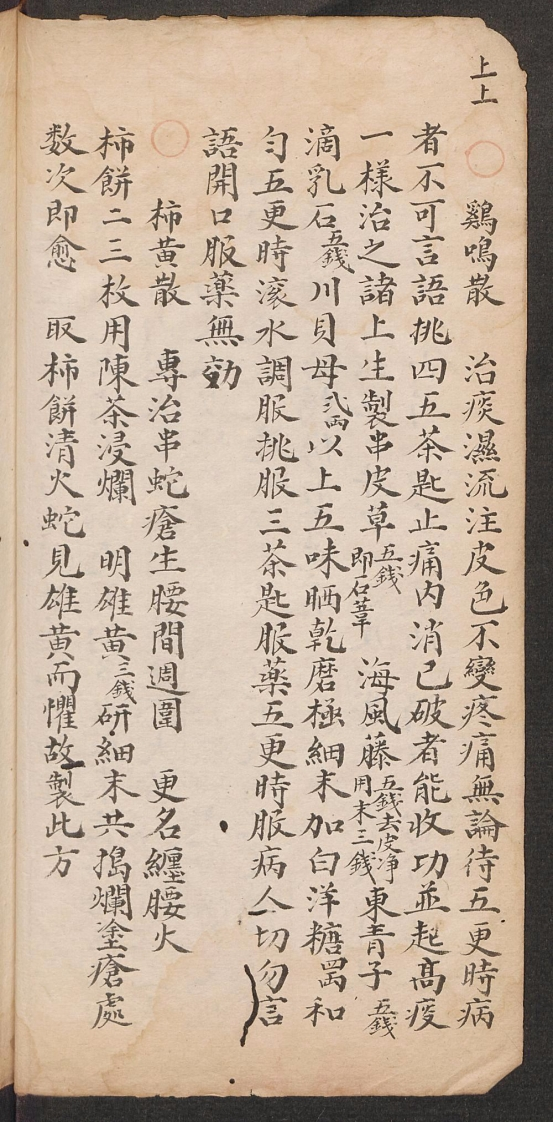 上上
鷄鳴散 治痰濕流注皮色不變疼痛無論待五更時病
者不可言語挑四五茶匙止痛內消已破者能收功並起高疫
一樣治之諸上生製串皮草五錢即石葦 海風藤五錢去皮净用末三錢東青子五錢
滴乳石五錢川貝母弍両以上五味晒乾磨極細末加白洋糖罵和
匀五更時滚水調服挑服三茶匙服藥五更時服病人一切勿言
語開口服藥無効
柿黃散 專治串蛇瘡生腰間週圍 更名纏腰火
柿餅二三枚用陳茶浸爛 明雄黃三錢研細末共搗爛塗瘡處
数次即愈 取柿餅清火蛇見雄黃而懼故製此方